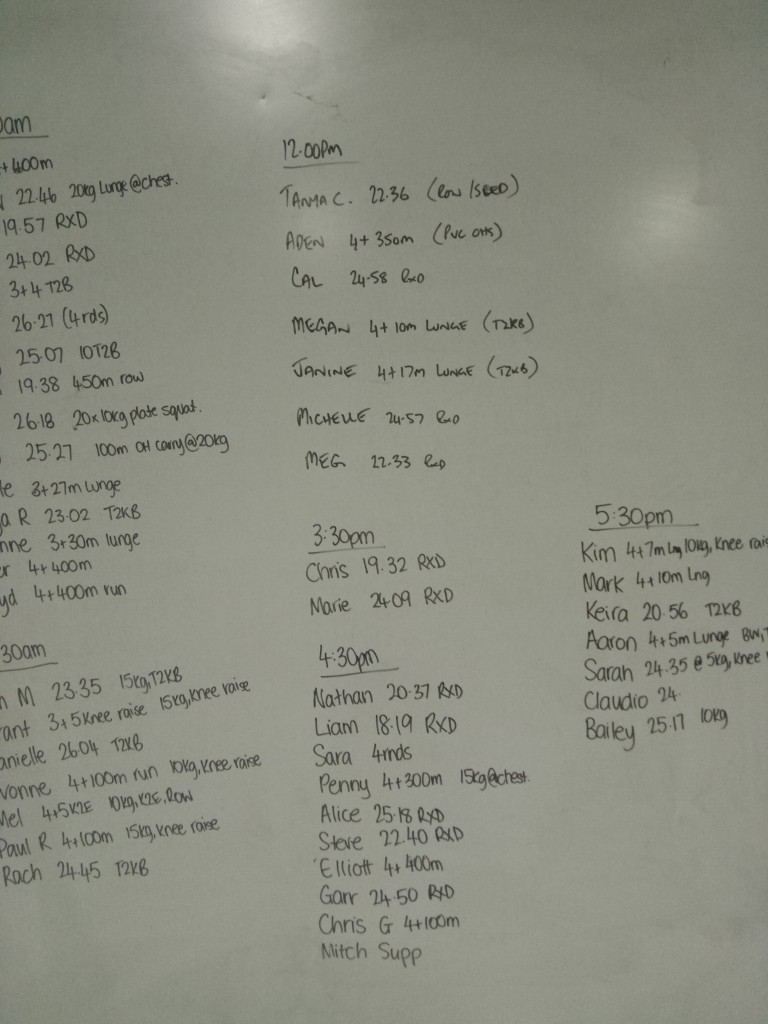 am
+400m
22.46 20kg Lunge @chest.
19.57 RXD
24.02 RXD
3+4 T2B
26.27 (4rds)
25.07 10T2B
19.38 450m row
26.18 20x10kg plate squat.
25.27 100m OH carry@20kg
3+27m lunge
a R 23.02 T2KB
nne 3+30m lunge
4+400m
yd 4+400m run
30am
M 23.35 15kg, T2KB
ant 3+5 knee raise 15kg, knee raise
anielle 26.04 T2KB
vonne 4+100m run 10kg, knee raise
Mel 4+5K2E 10kg, K2E, ROW
Paul R 4+100m 15kg, knee raise
Rach 24.45 T2KB
12.00pm
TANYA C. 22.36 (ROW/SKED)
ADEN 4+350m (PVC OHS)
CAL 24.58 RXD
MEGAN 4+10m LUNGE (T2KB)
JANINE 4+17m LUNGE (T2KB)
MICHELLE 24.57 RXD
MEG 22.33 RXD
3:30pm
Chris 19.32 RXD
Marie 24.09 RXD
4:30pm
Nathan 20.37 RXD
Liam 18.19 RXD
Sara 4rnds
Penny 4+300m 15kg@chest.
Alice 25.18 RXD
Steve 22.40 RXD
Elliott 4+400m
Garr 24.50 RXD
Chris G 4+100m
Mitch Supp
5:30pm
Kim 4+7m Lng 10kg, Knee rais
Mark 4+10m Lng
Keira 20.56 T2KB
Aaron 4+5m Lunge BW, T
Sarah 24.35 @ 5kg, Knee
Claudio 24.
Bailey 25.17 10kg